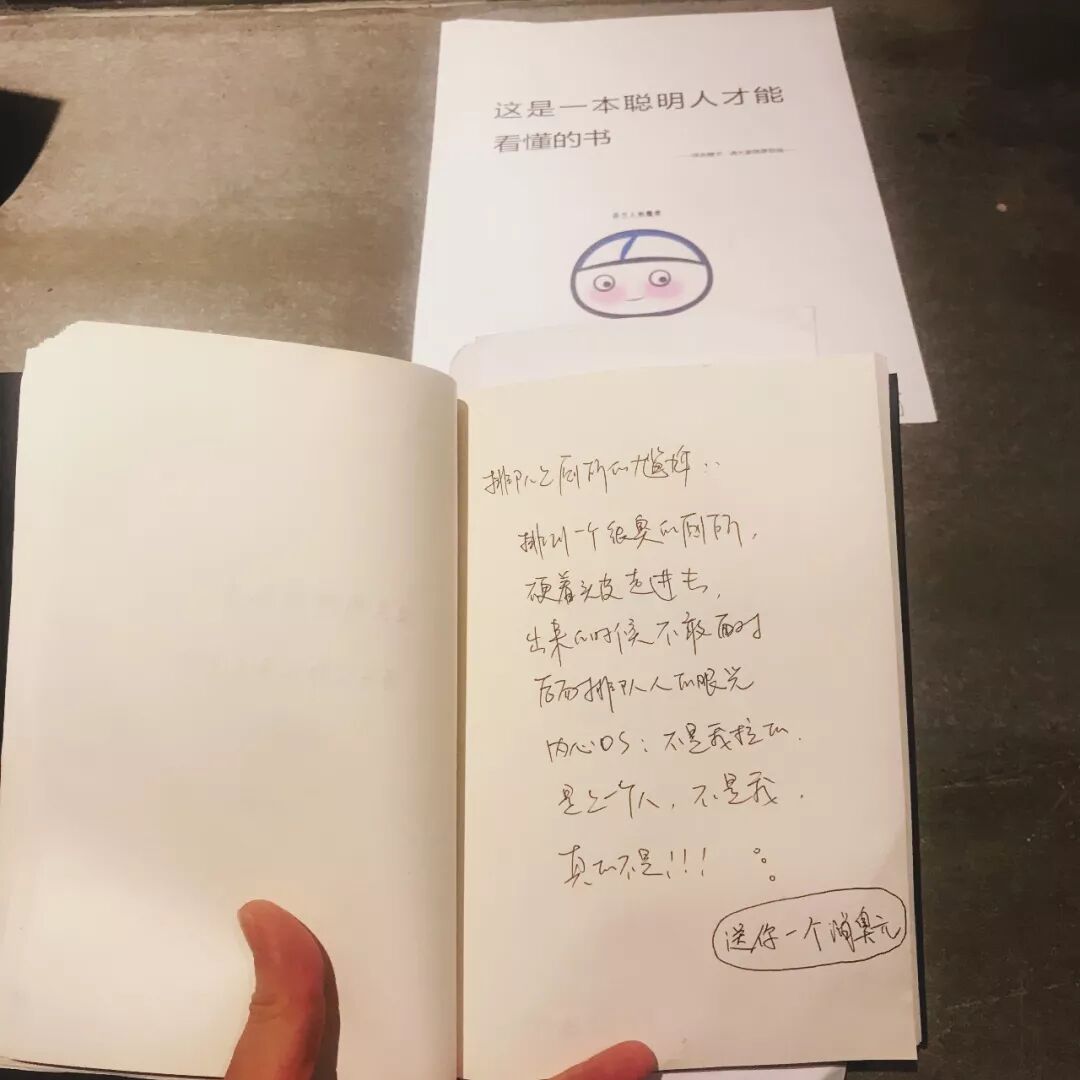 这是一本聪明人才能
看懂的书
排队上厕所的尴尬:
排到一个很臭的厕所,
硬着头皮走进去,
出来的时候不敢面对
后面排队人的眼光
内心OS:不是我拉的.
是上一个人,不是我.
真的不是!!!
送你一个消臭元